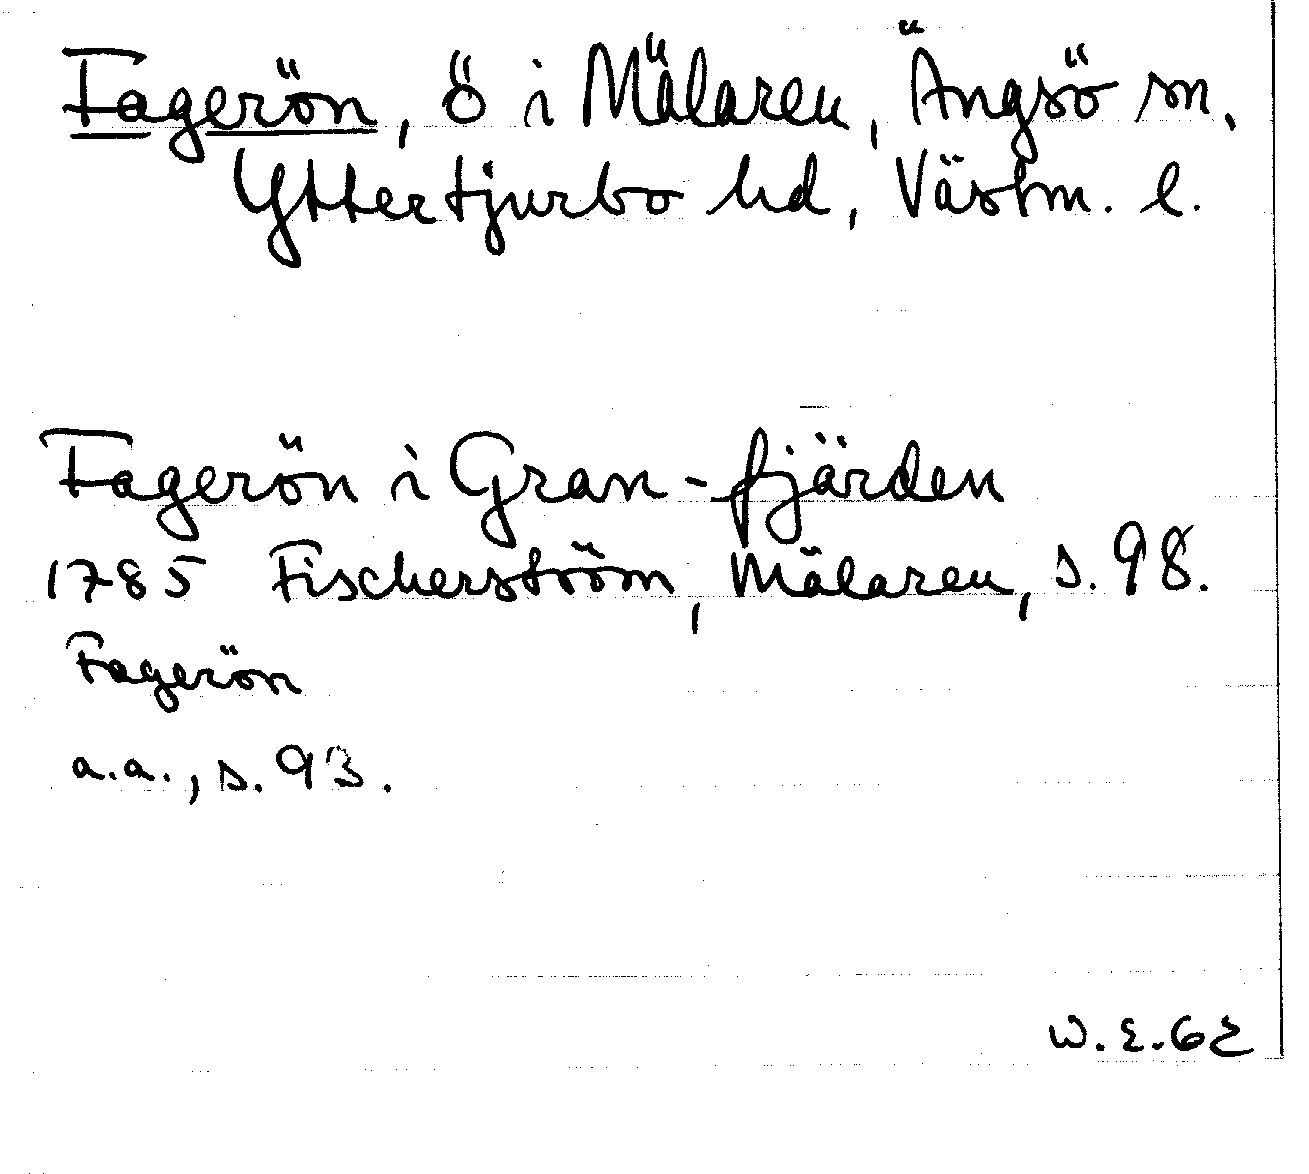 Fagerön, ö i Mälaren, Ängsö sn,
Yttertjurbo hd, Västm. l.
Fagerön i Gran-fjärden
1785 Fischerström, Mälaren, s. 98.
Fagerön
a.a., s. 93.
W.E.62